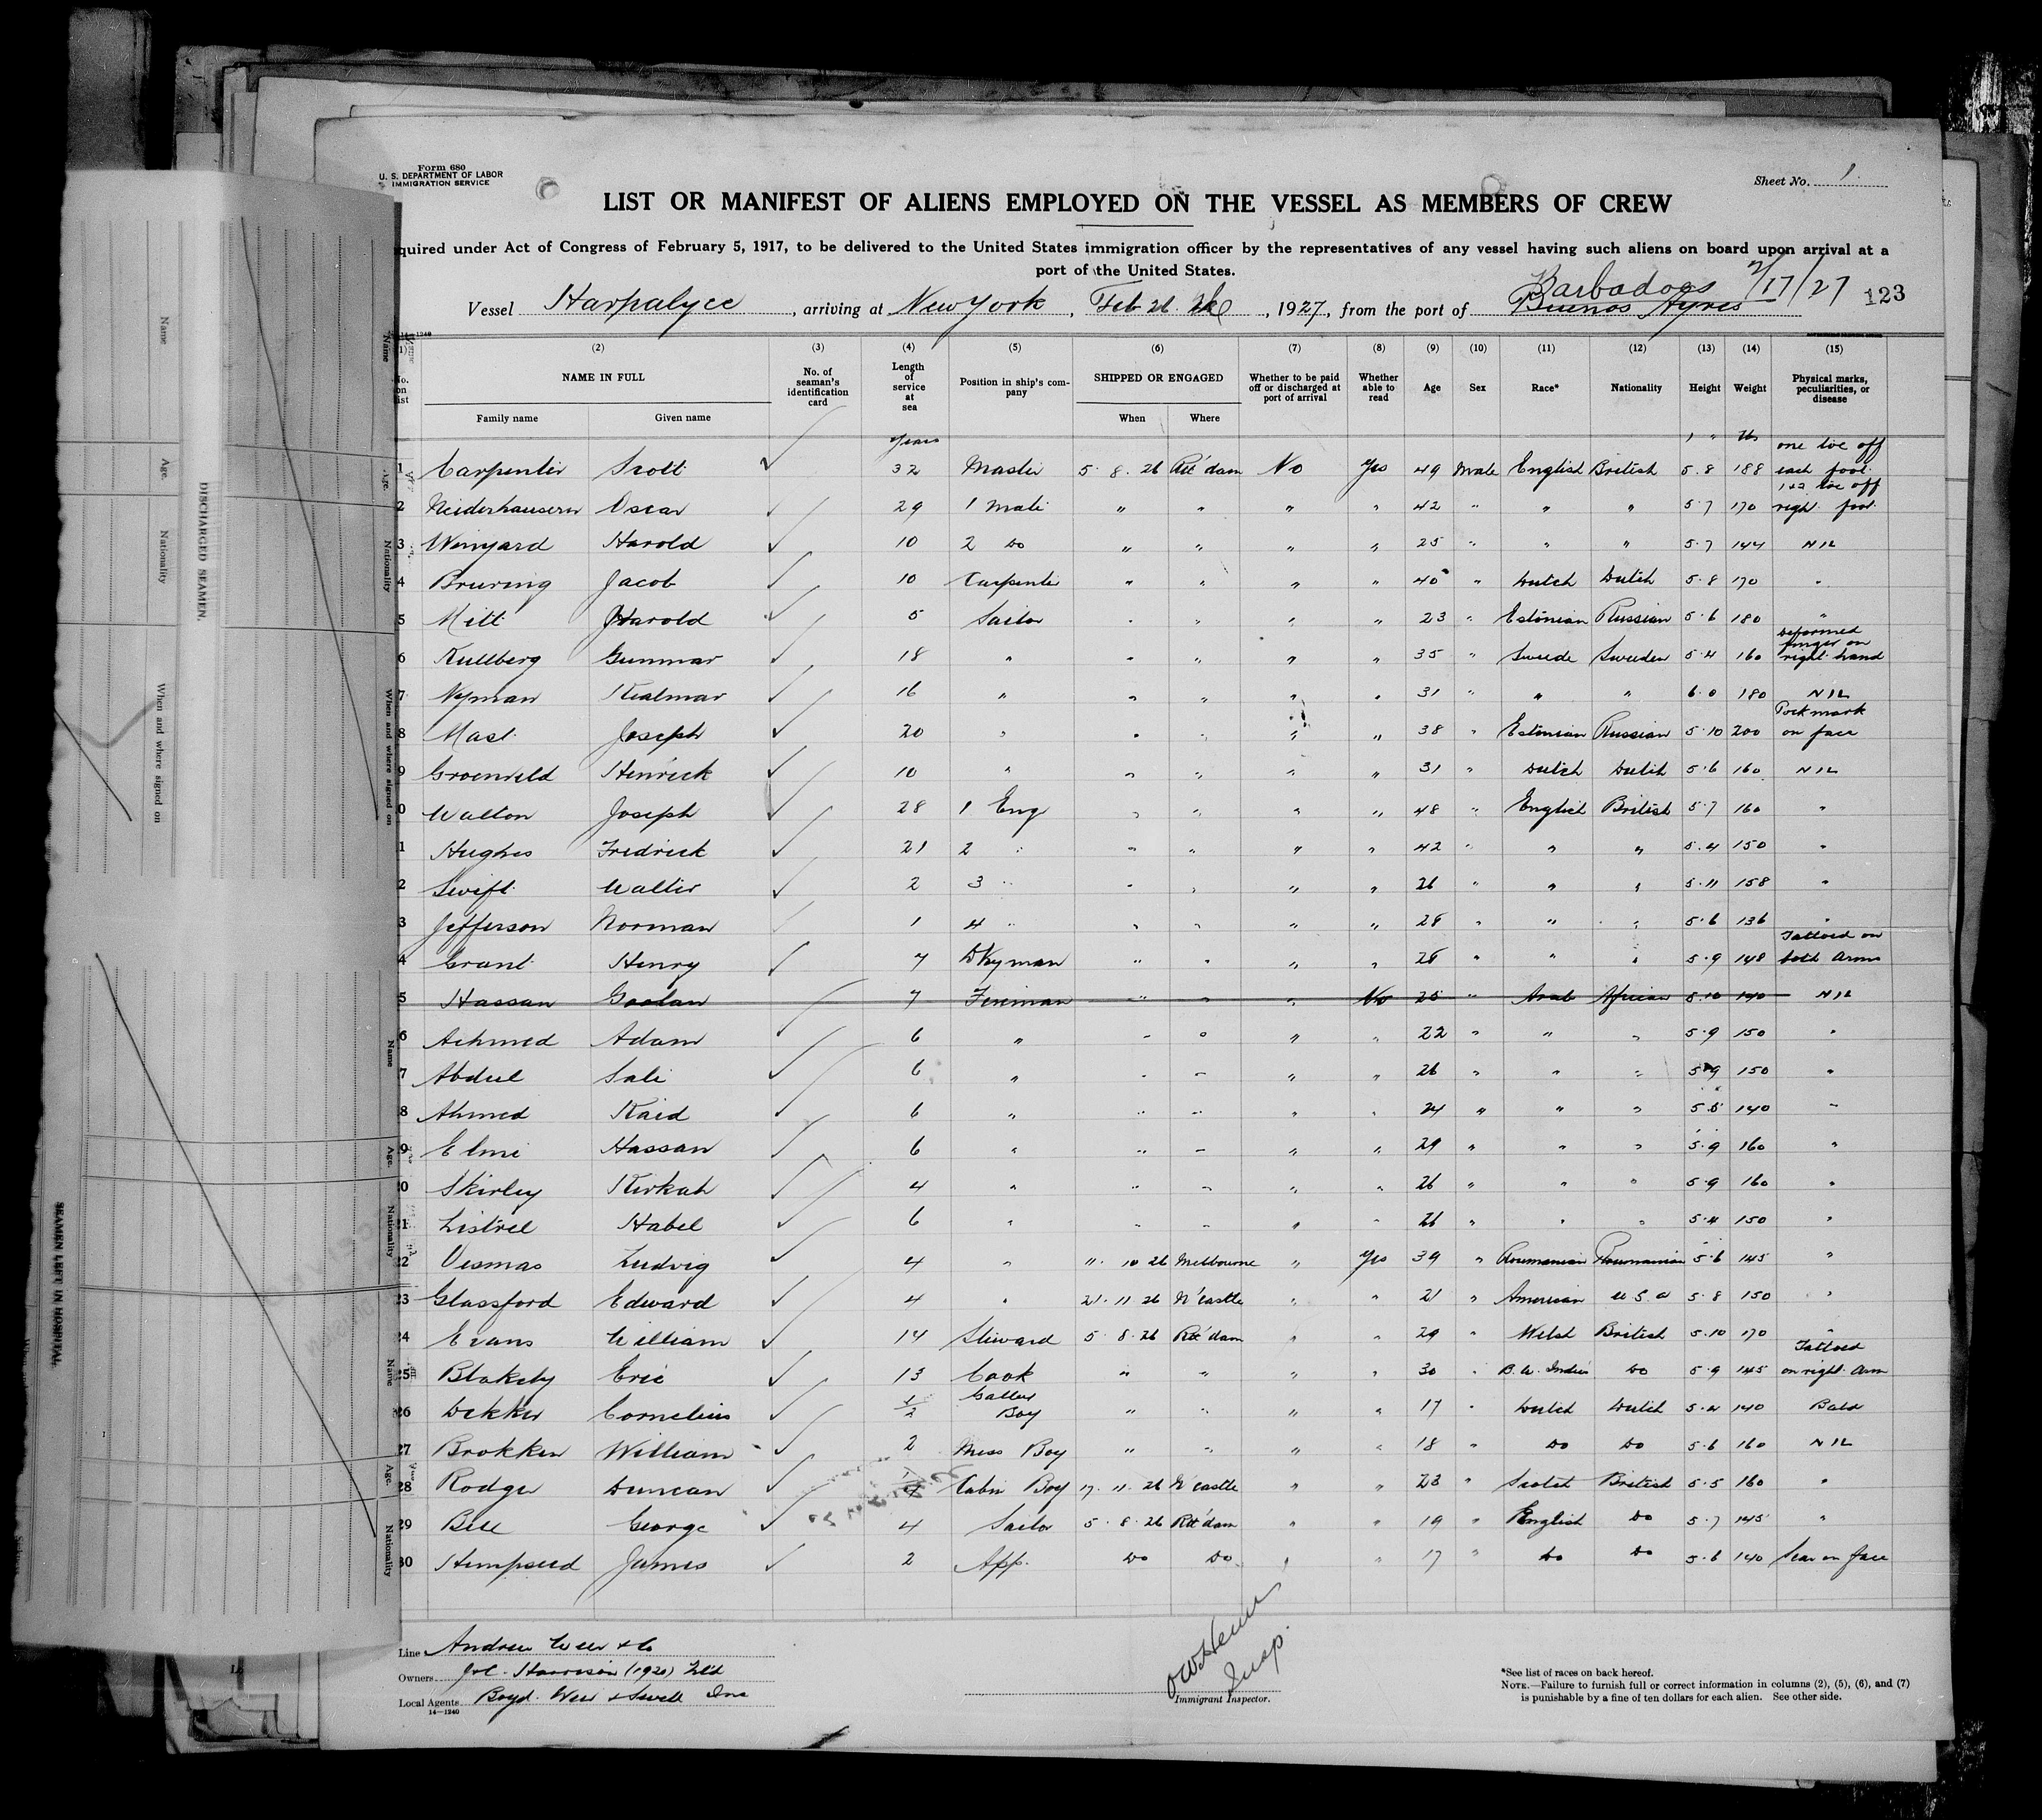 Form 680
U. S. DEPARTMENT OF LABOR
IMMIGRATION SERVICE
Sheet No. 1
LIST OR MANIFEST OF ALIENS EMPLOYED ON THE VESSEL AS MEMBERS OF CREW
quired under Act of Congress of February 5, 1917, to be delivered to the United States immigration officer by the representatives of any vessel having such aliens on board upon arrival at a
port of the United States.
Barbados 2/17/27
Vessel Harpalyce, arriving at New York, Feb 26, 1927, from the port of Buenos Ayres 123
(2) (3) (4) (5) (6) (7) (8) (9) (10) (11) (12) (13) (14) (15)
No. on list NAME IN FULL Family name Given name No. of seaman's identification card Length of service at sea Position in ship's company SHIPPED OR ENGAGED When Where Whether to be paid off or discharged at port of arrival Whether able to read Age Sex Race* Nationality Height Weight Physical marks, peculiarities, or disease
years ' " lbs
1 Carpenter Scott 32 Master 5. 8. 26 Rtt'dam No Yes 49 Male English British 5.8 188 one toe off each foot
2 Neiderhausern Oscar 29 1 Mate " " " " 42 " " " 5.7 170 1+2 toe off right foot
3 Winyard Harold 10 2 Do " " " " 25 " " " 5.7 144 NIL
4 Bruring Jacob 10 Carpenter " " " " 40 " Dutch Dutch 5.8 170 "
5 Mitt Harold 5 Sailor " " " " 23 " Estonian Russian 5.6 180 "
6 Kullberg Gunnar 18 " " " " " 35 " Swede Sweden 5.4 160 Deformed finger on right hand
7 Nyman Kialmar 16 " " " " " 31 " " " 6.0 180 NIL
8 Mast Joseph 20 " " " " " 38 " Estonian Russian 5.10 200 Pock mark on face
9 Groenveld Henrick 10 " " " " " 31 " Dutch Dutch 5.6 160 NIL
0 Walton Joseph 28 1 Eng " " " " 48 " English British 5.7 160 "
1 Hughes Fredrick 21 2 " " " " " 42 " " " 5.4 150 "
2 Swift Walter 2 3 " " " " " 26 " " " 5.11 158 "
3 Jefferson Norman 1 4 " " " " " " " " 5.6 136 "
4 Grant Henry 7 Dkyman " " " " " " " 5.9 148 Tattoed on both Arms
5 Hassan Goolan 7 Fireman " " " No 25 " Arab African 5.10 140 NIL
6 Achmed Adam 6 " " " " " 22 " " " 5.9 150 "
7 Abdul Sali 6 " " " " " 26 " " " 5.9 150 "
8 Ahmed Kaid 6 " " " " " 24 " " " 5.5 140 "
9 Elmi Hassan 6 " " " " " 29 " " " 5.9 160 "
0 Skirley Kirkah 4 " " " " " 26 " " " 5.9 160 "
21 Listree Habel 6 " " " " " 26 " " " 5.4 150 "
22 Vesmas Ludvig 4 " 11. 10 26 Melbourne " Yes 39 " Roumanian Roumanian 5.6 145 "
23 Glassford Edward 4 " 21. 11 26 N'castle " " 21 " American U S A 5.8 150 "
24 Evans William 14 Steward 5. 8. 26 Rtt'dam " " 29 " Welsh British 5.10 170 "
25 Blakely Eric 13 Cook " " " " 30 " B.W. Indies Do 5.9 145 Tattoed on right Arm
26 Dekker Cornelius 1/2 Galley Boy " " " " 17 " Dutch Dutch 5.4 140 Bald
27 Brokken William 2 Mess Boy " " " " 18 " Do Do 5.6 160 NIL
28 Rodger Duncan Cabin Boy 17. 11. 26 N'castle " " 23 " Scotch British 5.5 160 "
29 Bell George 4 Sailor 5. 8. 26 Rtt'dam " " 19 " English Do 5.7 145 "
30 Hempseed James 2 App. Do Do " " 17 " Do Do 5.6 140 Scar on face
Line Andrew Weir & Co
Owners J & C. Harrison (1920) Ltd
Local Agents Boyd. Weir & Sewell Inc
14—1240
Insp.
Immigrant Inspector.
*See list of races on back hereof.
NOTE.—Failure to furnish full or correct information in columns (2), (5), (6), and (7)
is punishable by a fine of ten dollars for each alien. See other side.
DISCHARGED SEAMEN.
Name Age. Nationality When and where signed on
SEAMEN LEFT IN HOSPITAL.
Name Age. Nationality When and where signed on
Name Age. Nationality
Name Age. Nationality